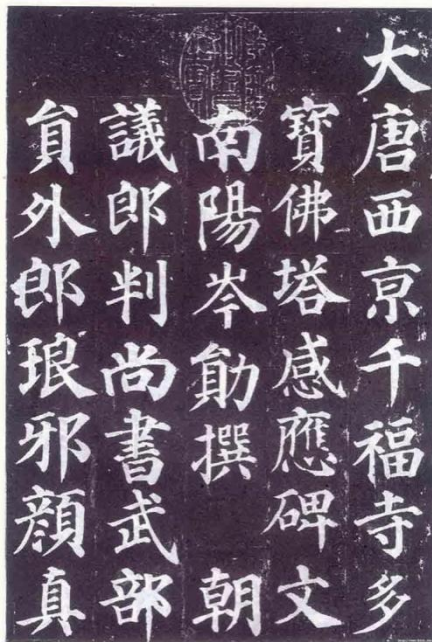 大唐西京千福寺多
寶佛塔感應碑文
南陽岑勛撰 朝
議郎判尚書武部
員外郎琅邪顏真